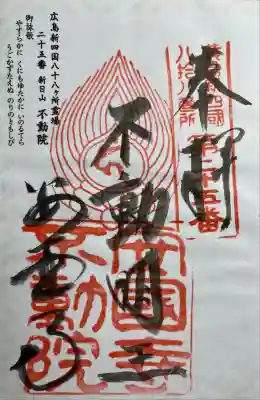 奉拝
広島新四国八十八ヶ所霊場
二十五番 新日山 不動院
御詠歌
やすらかに くにもゆたかに いのるてら
うごかずたえぬ のりのともしび
第二十五番
不動明王
不動院